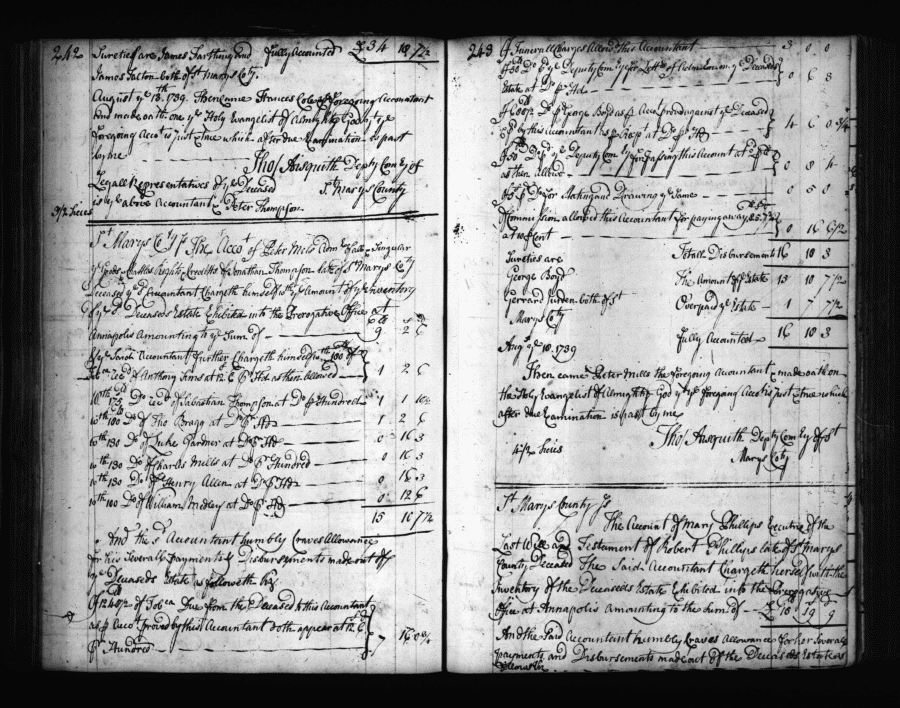 242
Sureties are James Farthing and fully Accounted £34 10 7 1/2
James Tarlton both of St Marys Coty.
August ye 18th 1739. Then came Frances Cole ye foregoing Accomtant
and made oath on ye Holy Evangelist of Almighty God yt ye
foregoing Accot is just & true which after due Examination is past
by me
Thos Aisquith Depty Com Ey of
St Marys County
Legall Representatives of ye Deceased
is ye above Accountant & Peter Thompson.
3/2 Sides
St Marys Coty Ss The Accot of Peter Mills Admr of all & Singular
ye Goods Cattles Rights & Credits of Jonathan Thompson late of St Marys Coty
Deceased ye Accountant Chargeth himself wth ye Amount of ye Inventory
of ye sd Deceaseds Estate Exhibited into the Prerogative Office at
Annapolis Amounting to ye Sum of 9 2 6
& ye Said Accountant further Chargeth himself with 180 of
Tobco Recd of Anthony Sims at 12/6 pr Hd as then Allowed 1 2 6
With 175 Do Recd of Sabastian Thompson at Do pr Hundred 1 1 10 1/2
With 180 Do of Tho Bragg at Do pr Hd 1 2 6
With 130 Do of Luke Gardner at Do pr Hd 0 16 3
With 130 Do of Charles Mills at Do pr Hundred 0 16 3
With 130 Do of Henry Allen at Do pr Hd 0 16 3
With 100 Do of William Medley at Do pr Hd 0 12 6
15 10 7 1/2
And the sd Accountant humbly Craves Allowance
for his Severall payments & Disbursements made out of
ye Deceaseds Estate as followeth Viz
Of Tobco Due from the Deceased to this Accountant
as pr Accot proved by this Accountant Doth appear at 12/6
pr Hundred 7 16 0 3/4
243
Of Funerall Charges Allowd this Accountant 3 0 0
Of 50 Do pd ye Deputy Com Ey for Letters of Adm on ye Deceaseds
Estate at Do pr Hd 0 6 3
Of Do pd George Boyd as pr Accot proved against ye Deceased
& pd by this Accountant as pr Recpt at Do pr Hd 4 6 0 3/4
Of Do pd ye Deputy Com Ey for passing this Account at Do pr Hd
as then allowd 0 8 4
Of Do pd for Stating and Drawing ye Same 0 5 0
Of Commission allowed this Accountant for paying away
at 10 pr Cent 0 16
Sureties are Totall Disbursements 16 10 3
George Boyd The Amount of ye Estate 15 10 7 1/2
Gerrard Jordan both of St Overpaid ye Estate 1 7 7 1/2
Marys Coty fully Accounted 16 10 3
Augt ye 18. 1739
Then came Peter Mills the foregoing Accountant & made oath on
the Holy Evangelist of Almighty God yt ye foregoing Accot is just & true which
after due Examination is past by me
4/2 Sides Thos Aisquith Depty Com Ey of St
Marys Coty
St Marys County Ss
The Account of Mary Phillips Executrix of the
Last Will and Testament of Robert Phillips late of St Marys
County Deceased The Said Accountant Chargeth herself with the
Inventory of the Deceaseds Estate Exhibited into the Prerogative
Office at Annapolis Amounting to the Sum of £ 18 19 9
And the Said Accountant humbly Craves Allowance for her Severall
payments and Disbursements made out of the Deceaseds Estate as
followeth